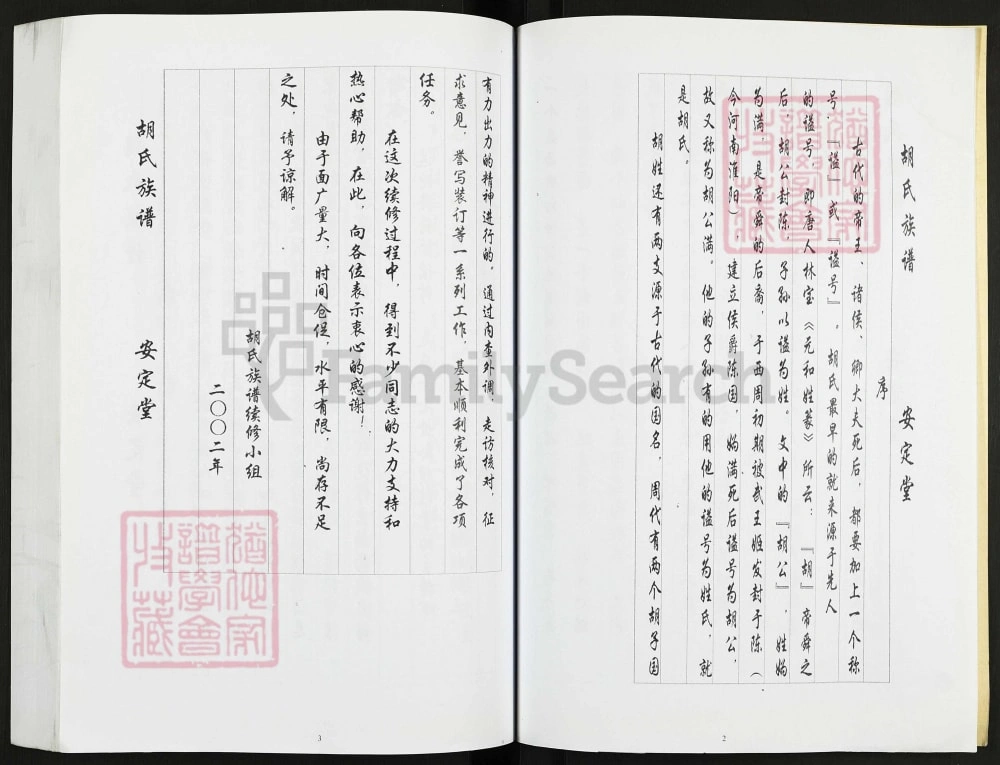 胡氏族谱　安定堂
序
古代的帝王、诸侯、卿大夫死后，都要加上一个称
号，『谥』或『谥号』，胡氏最早的就来源于先人
的谥号，即唐人林宝《元和姓篆》所云：『胡』帝舜之
后，胡公封陈，子孙以谥为姓。文中的『胡公』，姓妫
名满，是帝舜的后裔，于西周初期被武王姬发封于陈（
今河南淮阳）建立侯爵陈国，妫满死后谥号为胡公，
故又称为胡公满。他的子孙有的用他的谥号为姓氏，就
是胡氏。
胡姓还有两支源于古代的国名，周代有两个胡子国
2
有力出力的精神进行的。通过内查外调，走访核对，征
求意见，誊写装订等一系列工作，基本顺利完成了各项
任务。
在这次续修过程中，得到不少同志的大力支持和
热心帮助，在此，向各位表示衷心的感谢！
由于面广量大，时间仓促，水平有限，尚存不足
之处，请予谅解。
胡氏族谱续修小组
二〇〇二年
胡氏族谱　安定堂
3
FamilySearch